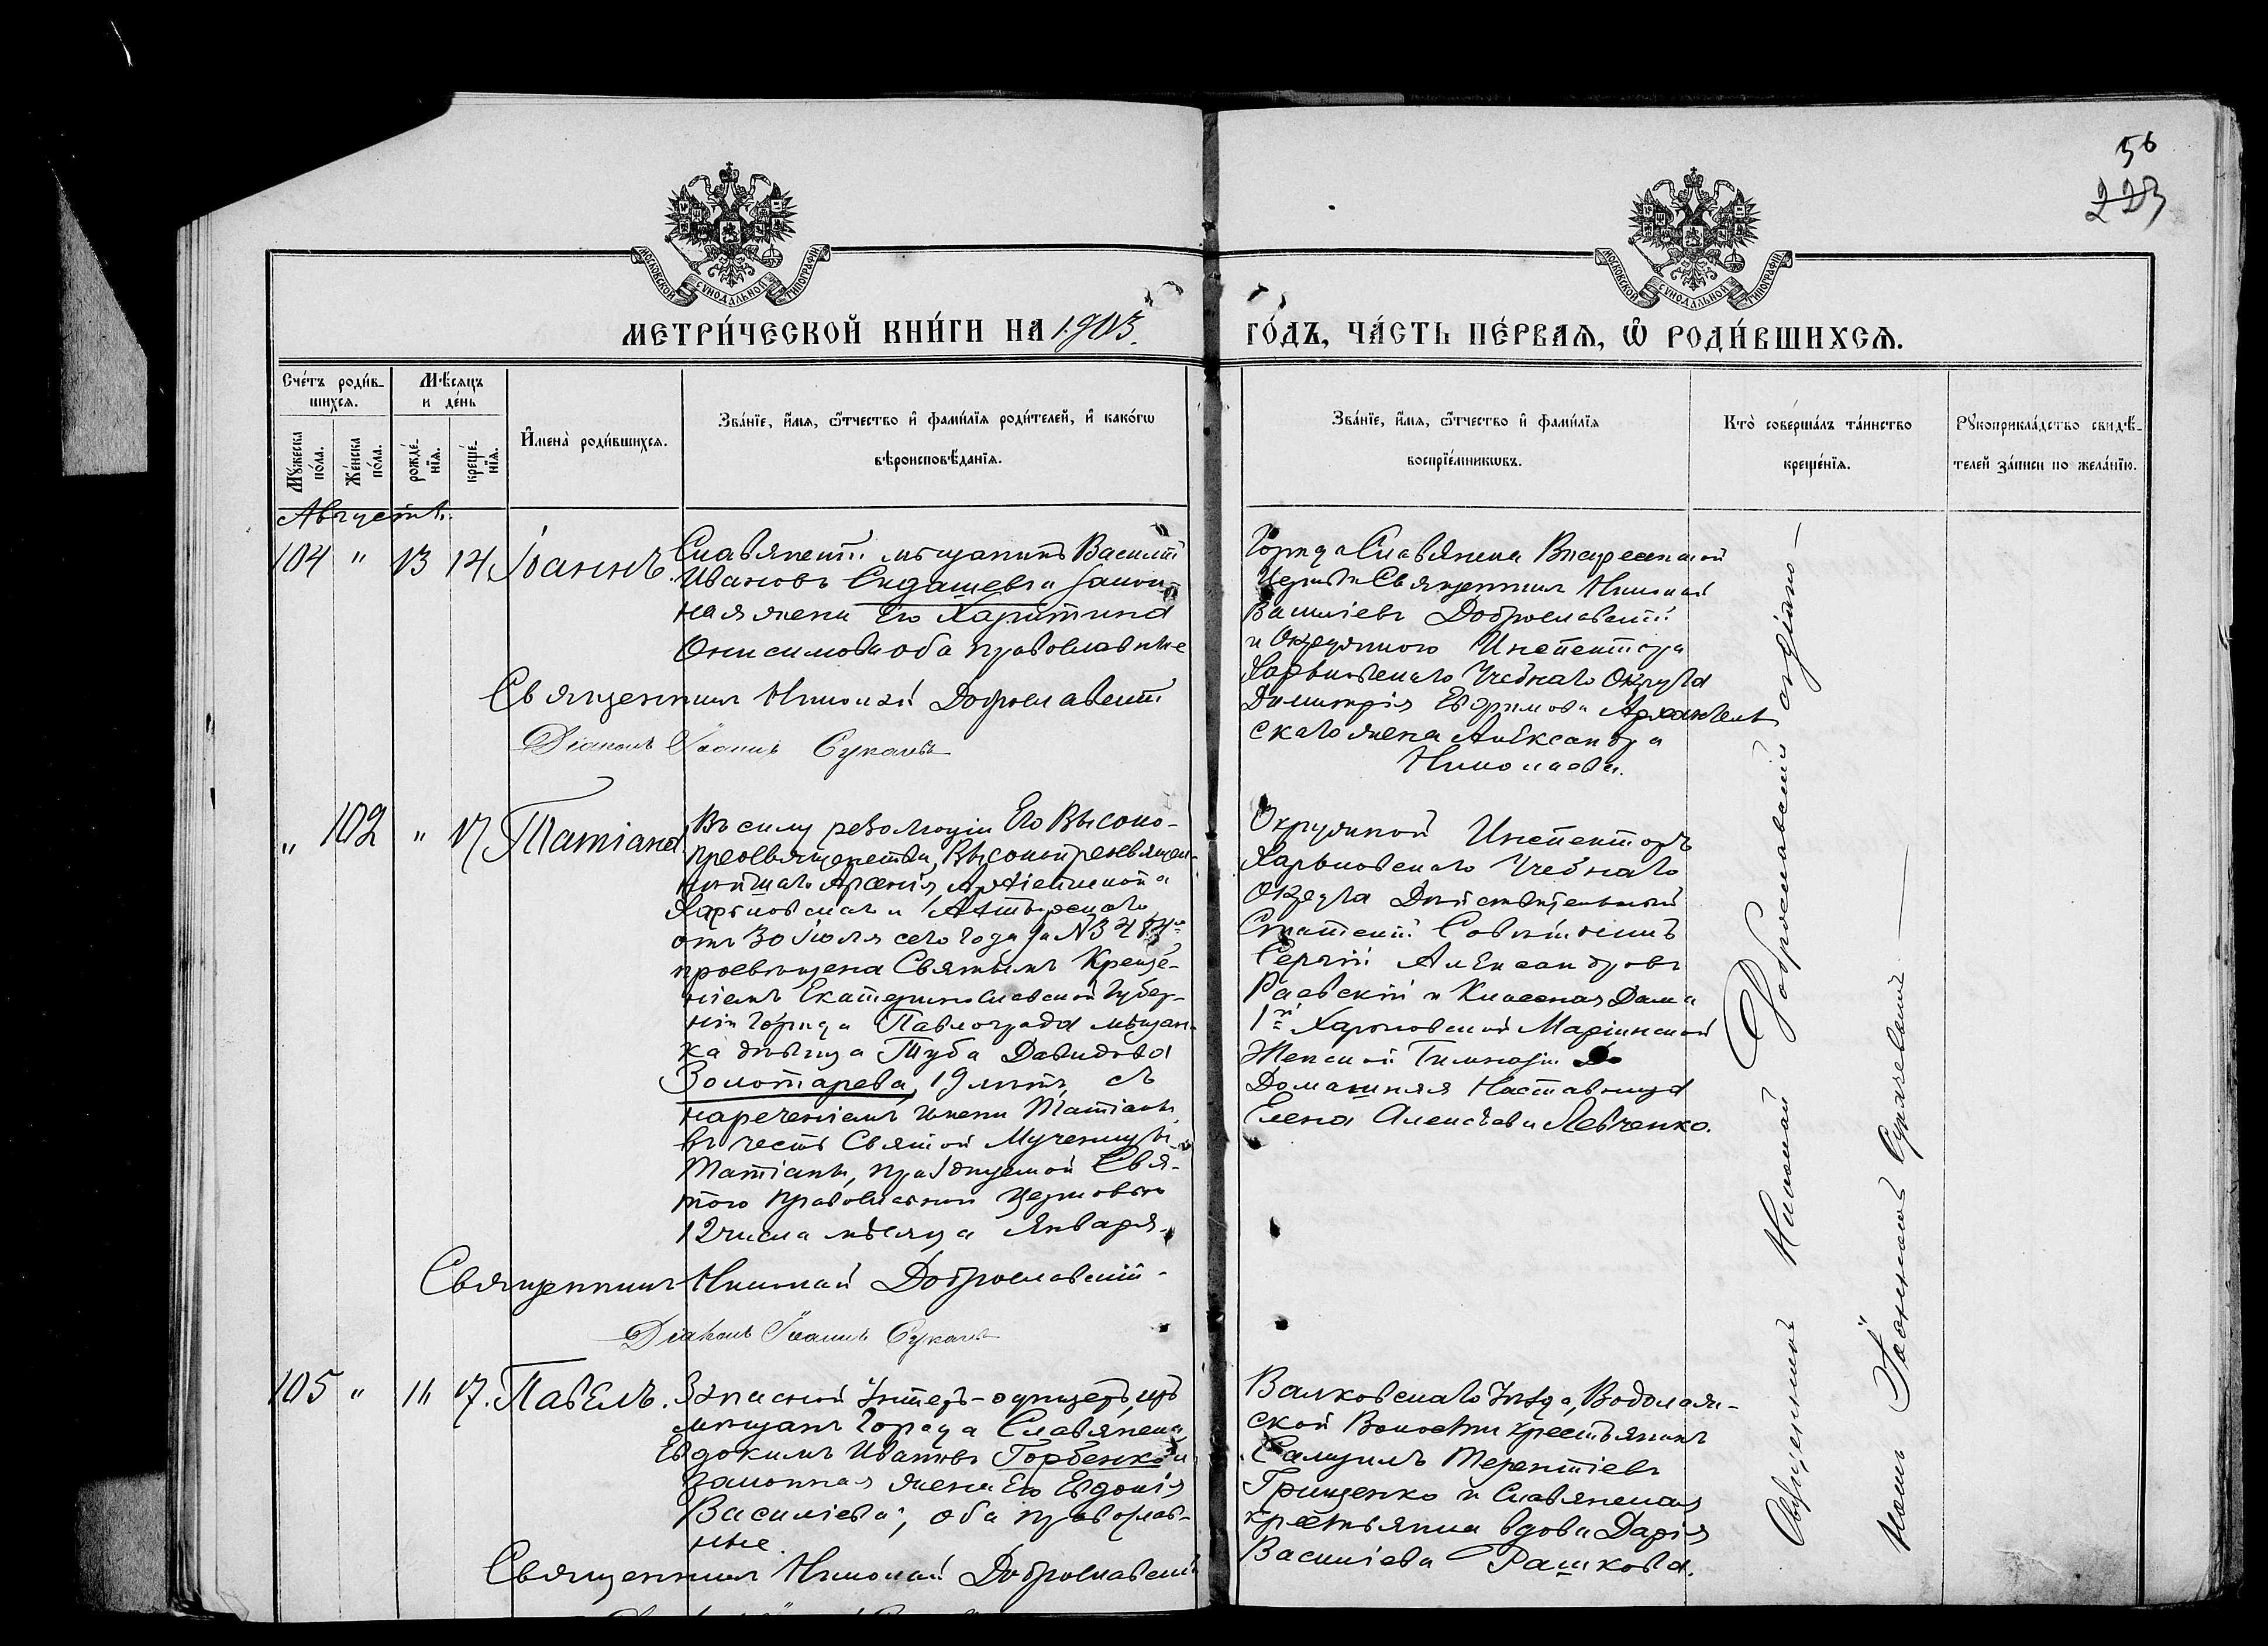 56
223
МОСКОВСКОЙ СУНОДАЛЬНОЙ ТИПОГРАФІИ
МОСКОВСКОЙ СУНОДАЛЬНОЙ ТИПОГРАФІИ
МЕТРИ́ЧЕСКОЙ КНИ́ГИ НА 1903.
ГО́ДЪ, ЧА́СТЬ ПЕ́РВАѦ, Ѡ҆ РОДИ́ВШИХСѦ.
Сче́тъ роди́в-
шихсѧ.
Мѣ́сяцъ
и де́нь
Мꙋ́жеска
по́ла.
Же́нска
по́ла.
рожде́-
нїѧ.
креще́-
нїѧ.
И҆мена̀ роди́вшихсѧ.
Зва́нїе, и҆́мѧ, ѻ҆́тчество и҆ фами́лїѧ роди́телей, и҆ како́гѡ
вѣроисповѣ́данїѧ.
Зва́нїе, и҆́мѧ, ѻ҆́тчество и҆ фами́лїѧ
воспрїе́мникѡвъ.
Кто̀ соверша́лъ та́инство
креще́нїѧ.
Рꙋкоприкла́дство свидѣ́-
телей за́писи по жела́нїю.
Августъ.
104 " 13 14 Іоаннъ.
Славянскій мѣщанинъ Василій
Ивановъ Сидашевъ и закон-
ная жена его Харитина
Онисимова оба православные
Священникъ Николай Доброславскій
Діаконъ Іоаннъ Сукачевъ
Города Славянска Воскресенской
Церкви Священникъ Николай
Василіевъ Доброславскій
и Окружного Инспектора
Харьковскаго Учебнаго Округа
Димитрія Евфимова Архангель
скаго жена Александра
Николаева.
" 102 " 17 Татіана
Въ силу резолюціи Его Высоко-
преосвященства, Высокопреосвящен-
нѣйшаго Арсенія, Архіепископа
Харьковскаго и Ахтырскаго
отъ 30 іюля сего года за №
просвѣщена Святымъ Креще-
ніемъ Екатеринославской Губер-
ніи города Павлограда мѣщан-
ка дѣвица Туба Давидова
Золотарева, 19 лѣтъ, съ
нареченіемъ имени Татіаны
въ честь Святой Мученицы
Татіаны, празднуемой Свя-
тою Православной Церковью
12 числа мѣсяца Января.
Священникъ Николай Доброславскій.
Діаконъ Іоаннъ Сукачевъ
Окружной Инспекторъ
Харьковскаго Учебнаго
Округа Дѣйствительный
Статскій Совѣтникъ
Сергій Александровъ
Раевскій и Классная Дама
1й Харьковской Маріинской
Женской Гимназіи
Домашняя Наставница
Елена Алексѣева Левченко.
105 " 11 17. Павелъ.
Запасной Унтеръ-офицеръ, изъ
мѣщанъ города Славянска
Евдокимъ Ивановъ Горбенко и
законная жена его Евдокія
Василіева; оба православ-
ные.
Священникъ Николай Доброславскій
Валковскаго Уѣзда, Водолаж-
ской Волости крестьянинъ
Самуилъ Терентіевъ
Грищенко и Славянская
крестьянка вдова Дарія
Василіева Рашкова.
Священникъ Николай Доброславскій съ діакономъ
Іоанномъ Сукачевымъ